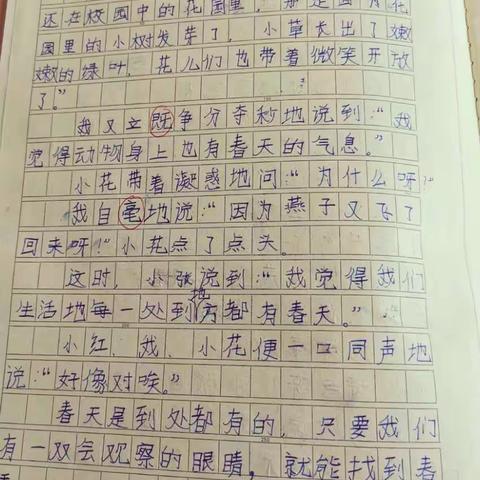 还在校园中的花园里，那是因为花
园里的小树发芽了，小草长出了嫩
嫩的绿叶，花儿们也带着微笑开放
了。”
我又立既争分夺秒地说到：“我
觉得动物身上也有春天的气息。”
小花带着凝惑地问：“为什么呀？”
我自毫地说：“因为燕子又飞了
回来呀！”小花点了点头。
这时，小张说到：“我觉得我们
生活地每一处到地方都有春天。”
小红、我、小花便一口同声地
说：“好像对唉。”
春天是到处都有的，只要我们
有一双会观察的眼睛，就能找到春